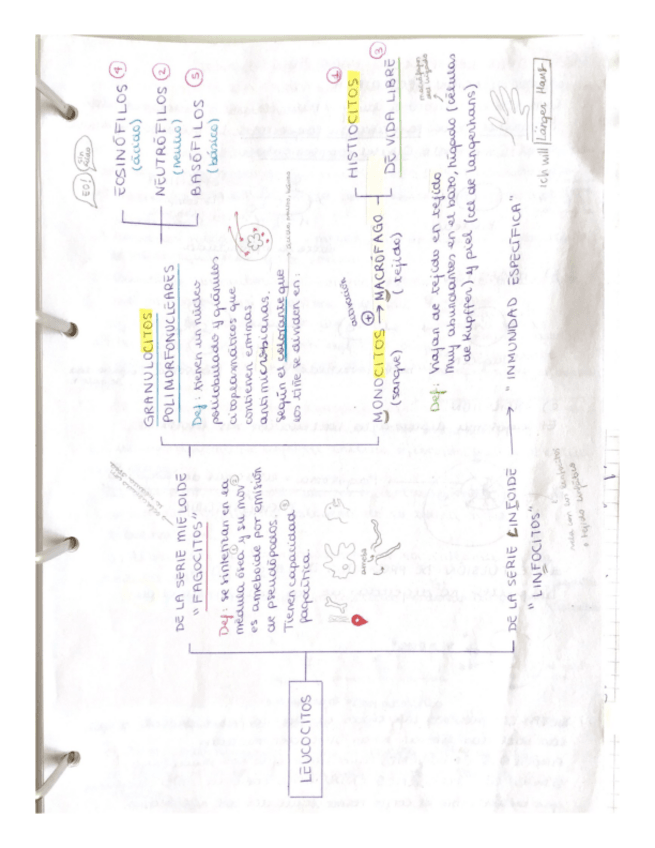 LEUCOCITOS
DE LA SERIE MIELOIDE
"FAGOCITOS"
Def: se sintetizan en la
médula ósea ① y su mov ②
es ameboide por emisión
de pseudópodos. ③
Tienen capacidad
fagocítica.
ameba
GRANULOCITOS
POLIMORFONUCLEARES
Def: tienen un núcleo
polilobulado y gránulos
citoplasmáticos que
contienen enzimas
antimicrobianas.
Según el colorante que
los tiñe se dividen en:
→ ácidos, neutro, básico
EOSINÓFILOS ④
(ácido)
NEUTRÓFILOS ②
(neutro)
BASÓFILOS ⑤
(básico)
EO!
MONOCITOS → MACRÓFAGO
(sangre)
(tejido)
activación
+
HISTIOCITOS
①
DE VIDA LIBRE
③
Def: Viajan de tejido en tejido
Muy abundantes en el bazo, hígado (células
de Kupffer) y piel (cel de Langerhans)
Ich will Langer Hans
DE LA SERIE LINFOIDE → "INMUNIDAD ESPECÍFICA"
"LINFOCITOS"